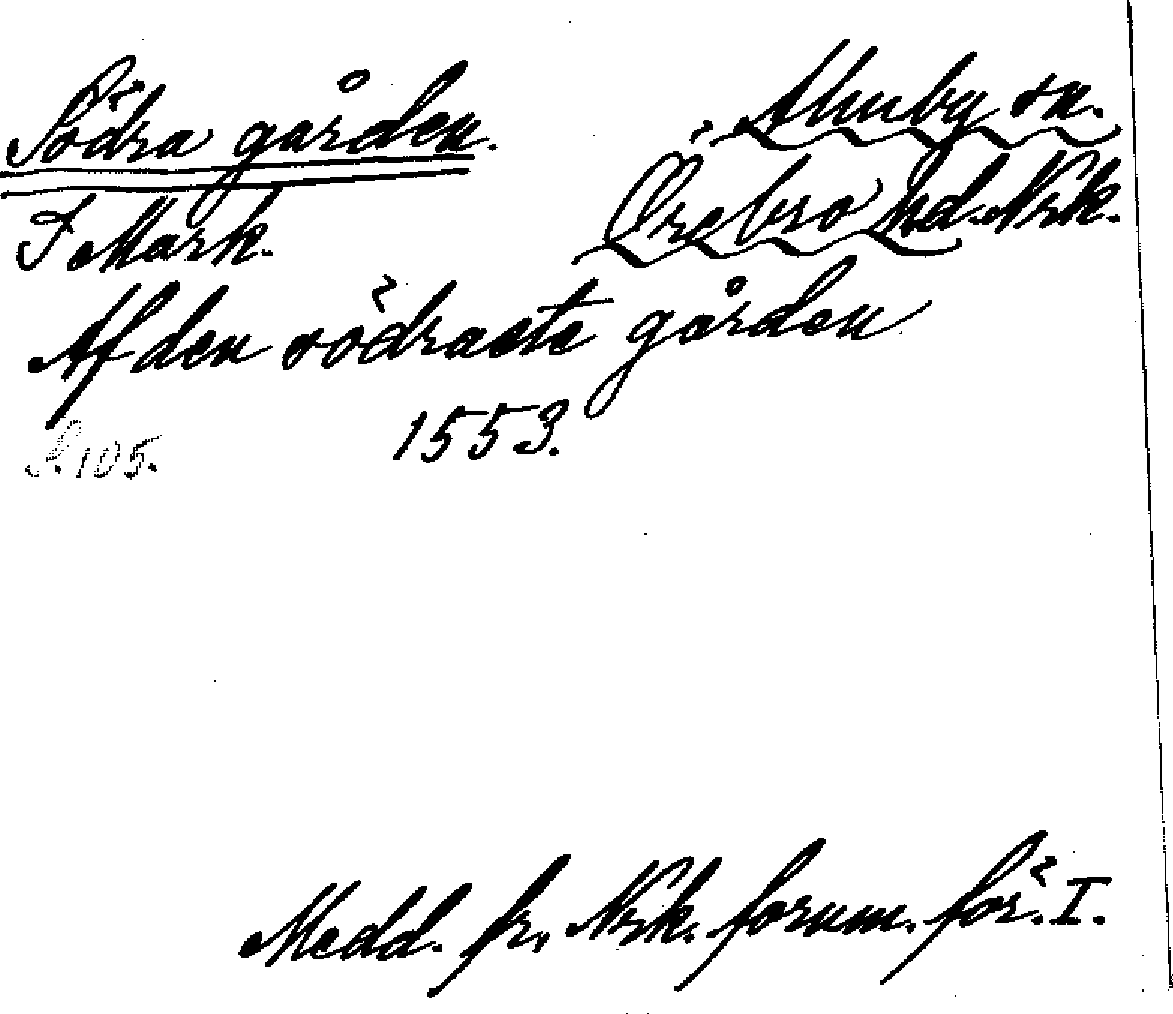 Södra gården.
Almby sn.
Örebro hd. Nrk.
I Mark.
Af den södraste gården
1553.
S. 105.
Medd. fr. Nrk. fornm. för. I.